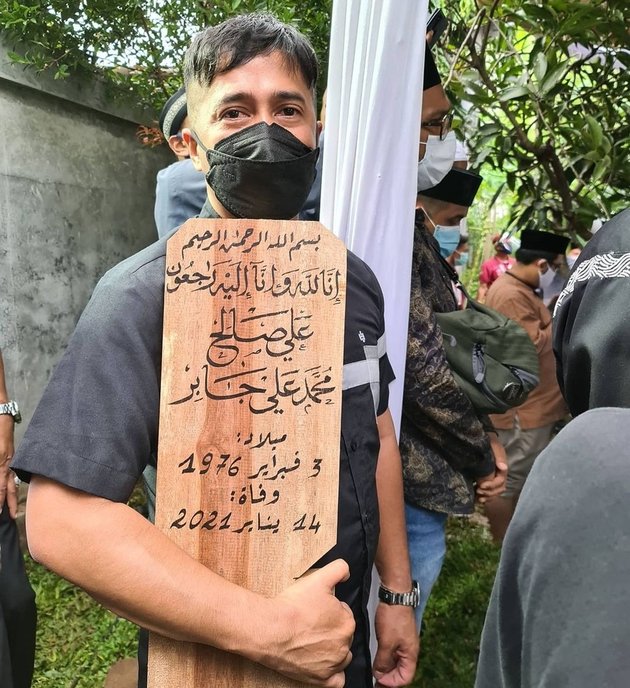 بسم الله الرحمن الرحيم
إنا لله وانآ إليه راجعون
علي صالح
محمد علي جابر
ميلاد:
3 فبراير 1976
وفاة:
14 يناير 2021